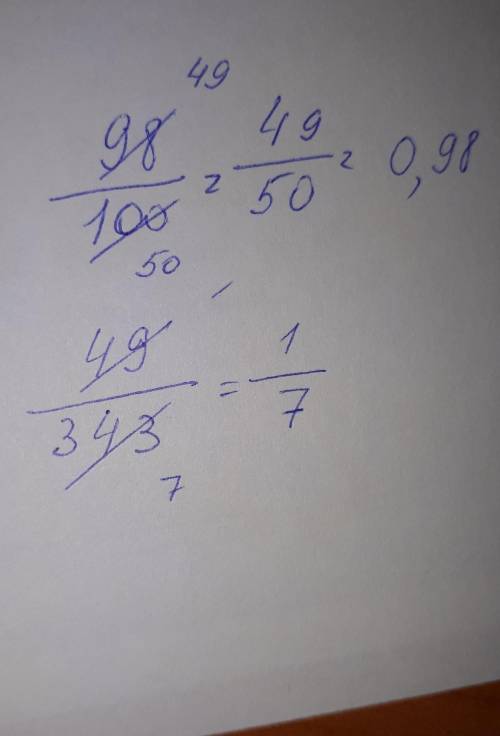 98/100 = 49/50 = 0,98
49
50
49/343 = 1/7
7